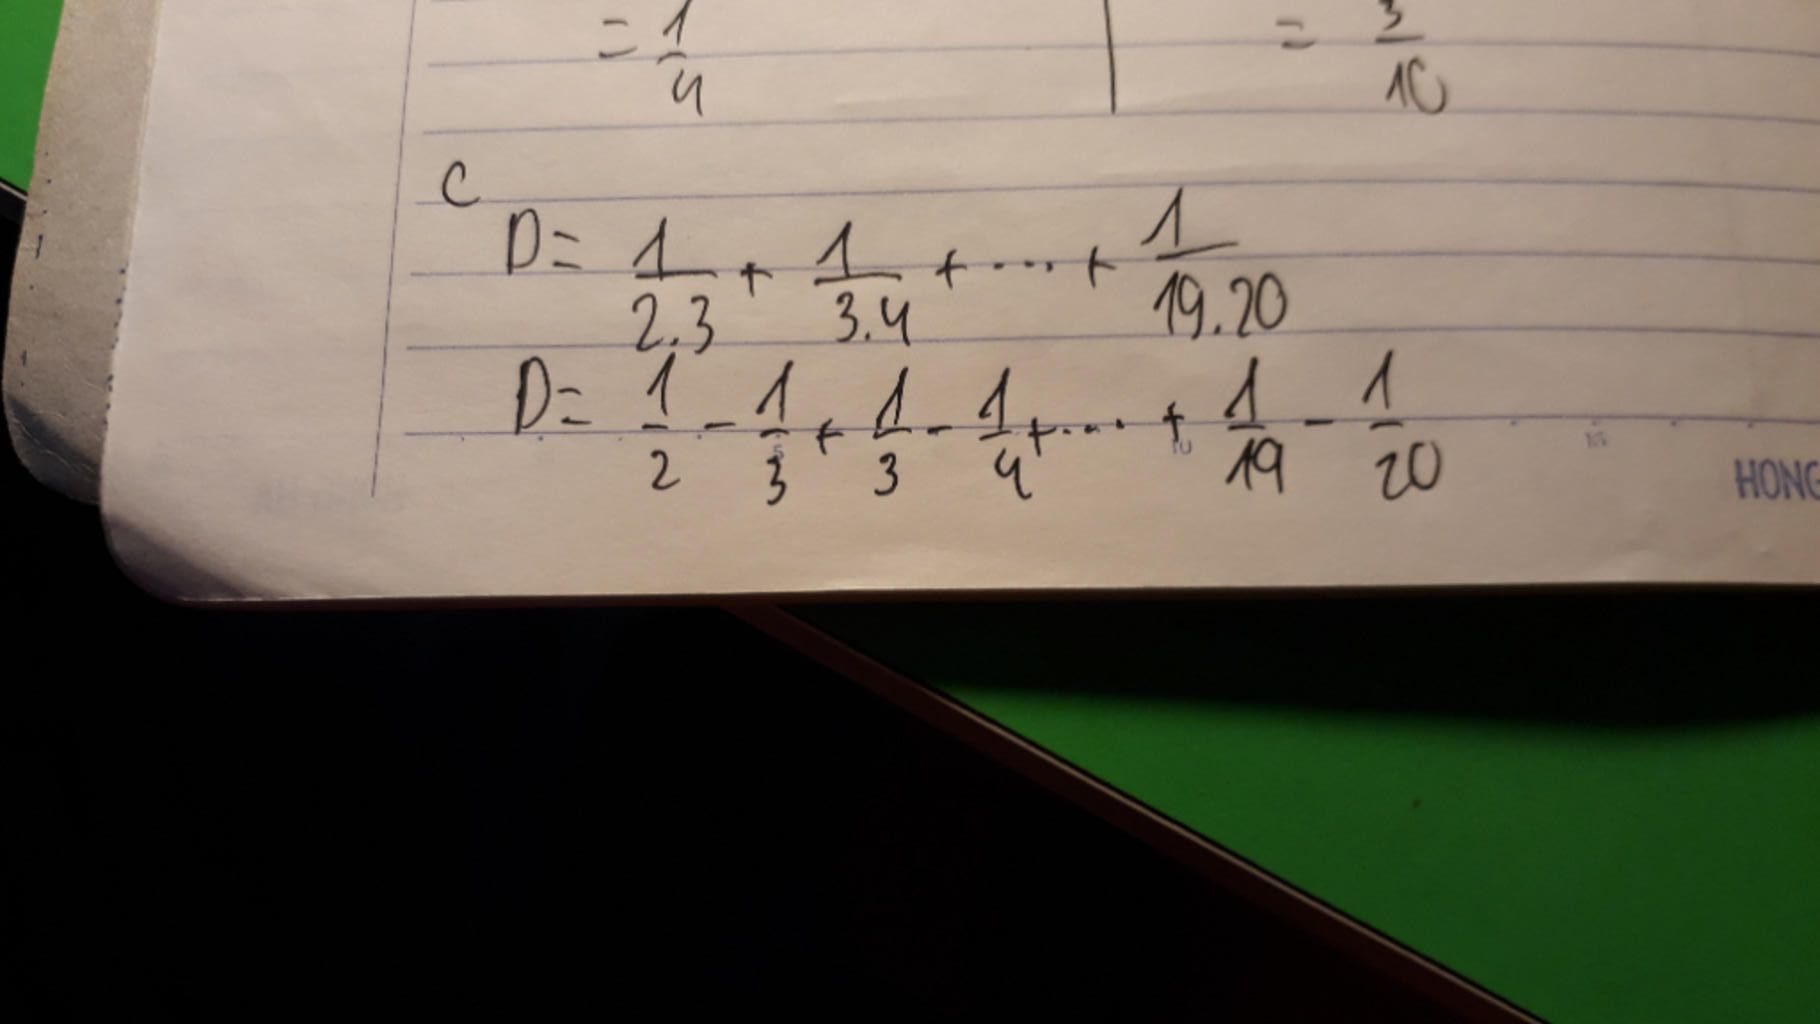 = 1/4 = 3/10
C
D = 1/2.3 + 1/3.4 + .... + 1/19.20
D = 1/2 - 1/3 + 1/3 - 1/4 + .... + 1/19 - 1/20
5 10 15
HONG